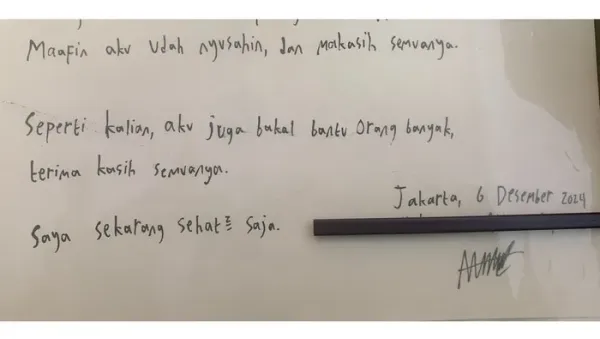 Maafin aku udah nyusahin, dan makasih semuanya.
Seperti kalian, aku juga bakal bantu orang banyak,
terima kasih semuanya.
Jakarta, 6 Desember 2024
Saya sekarang sehat² saja.